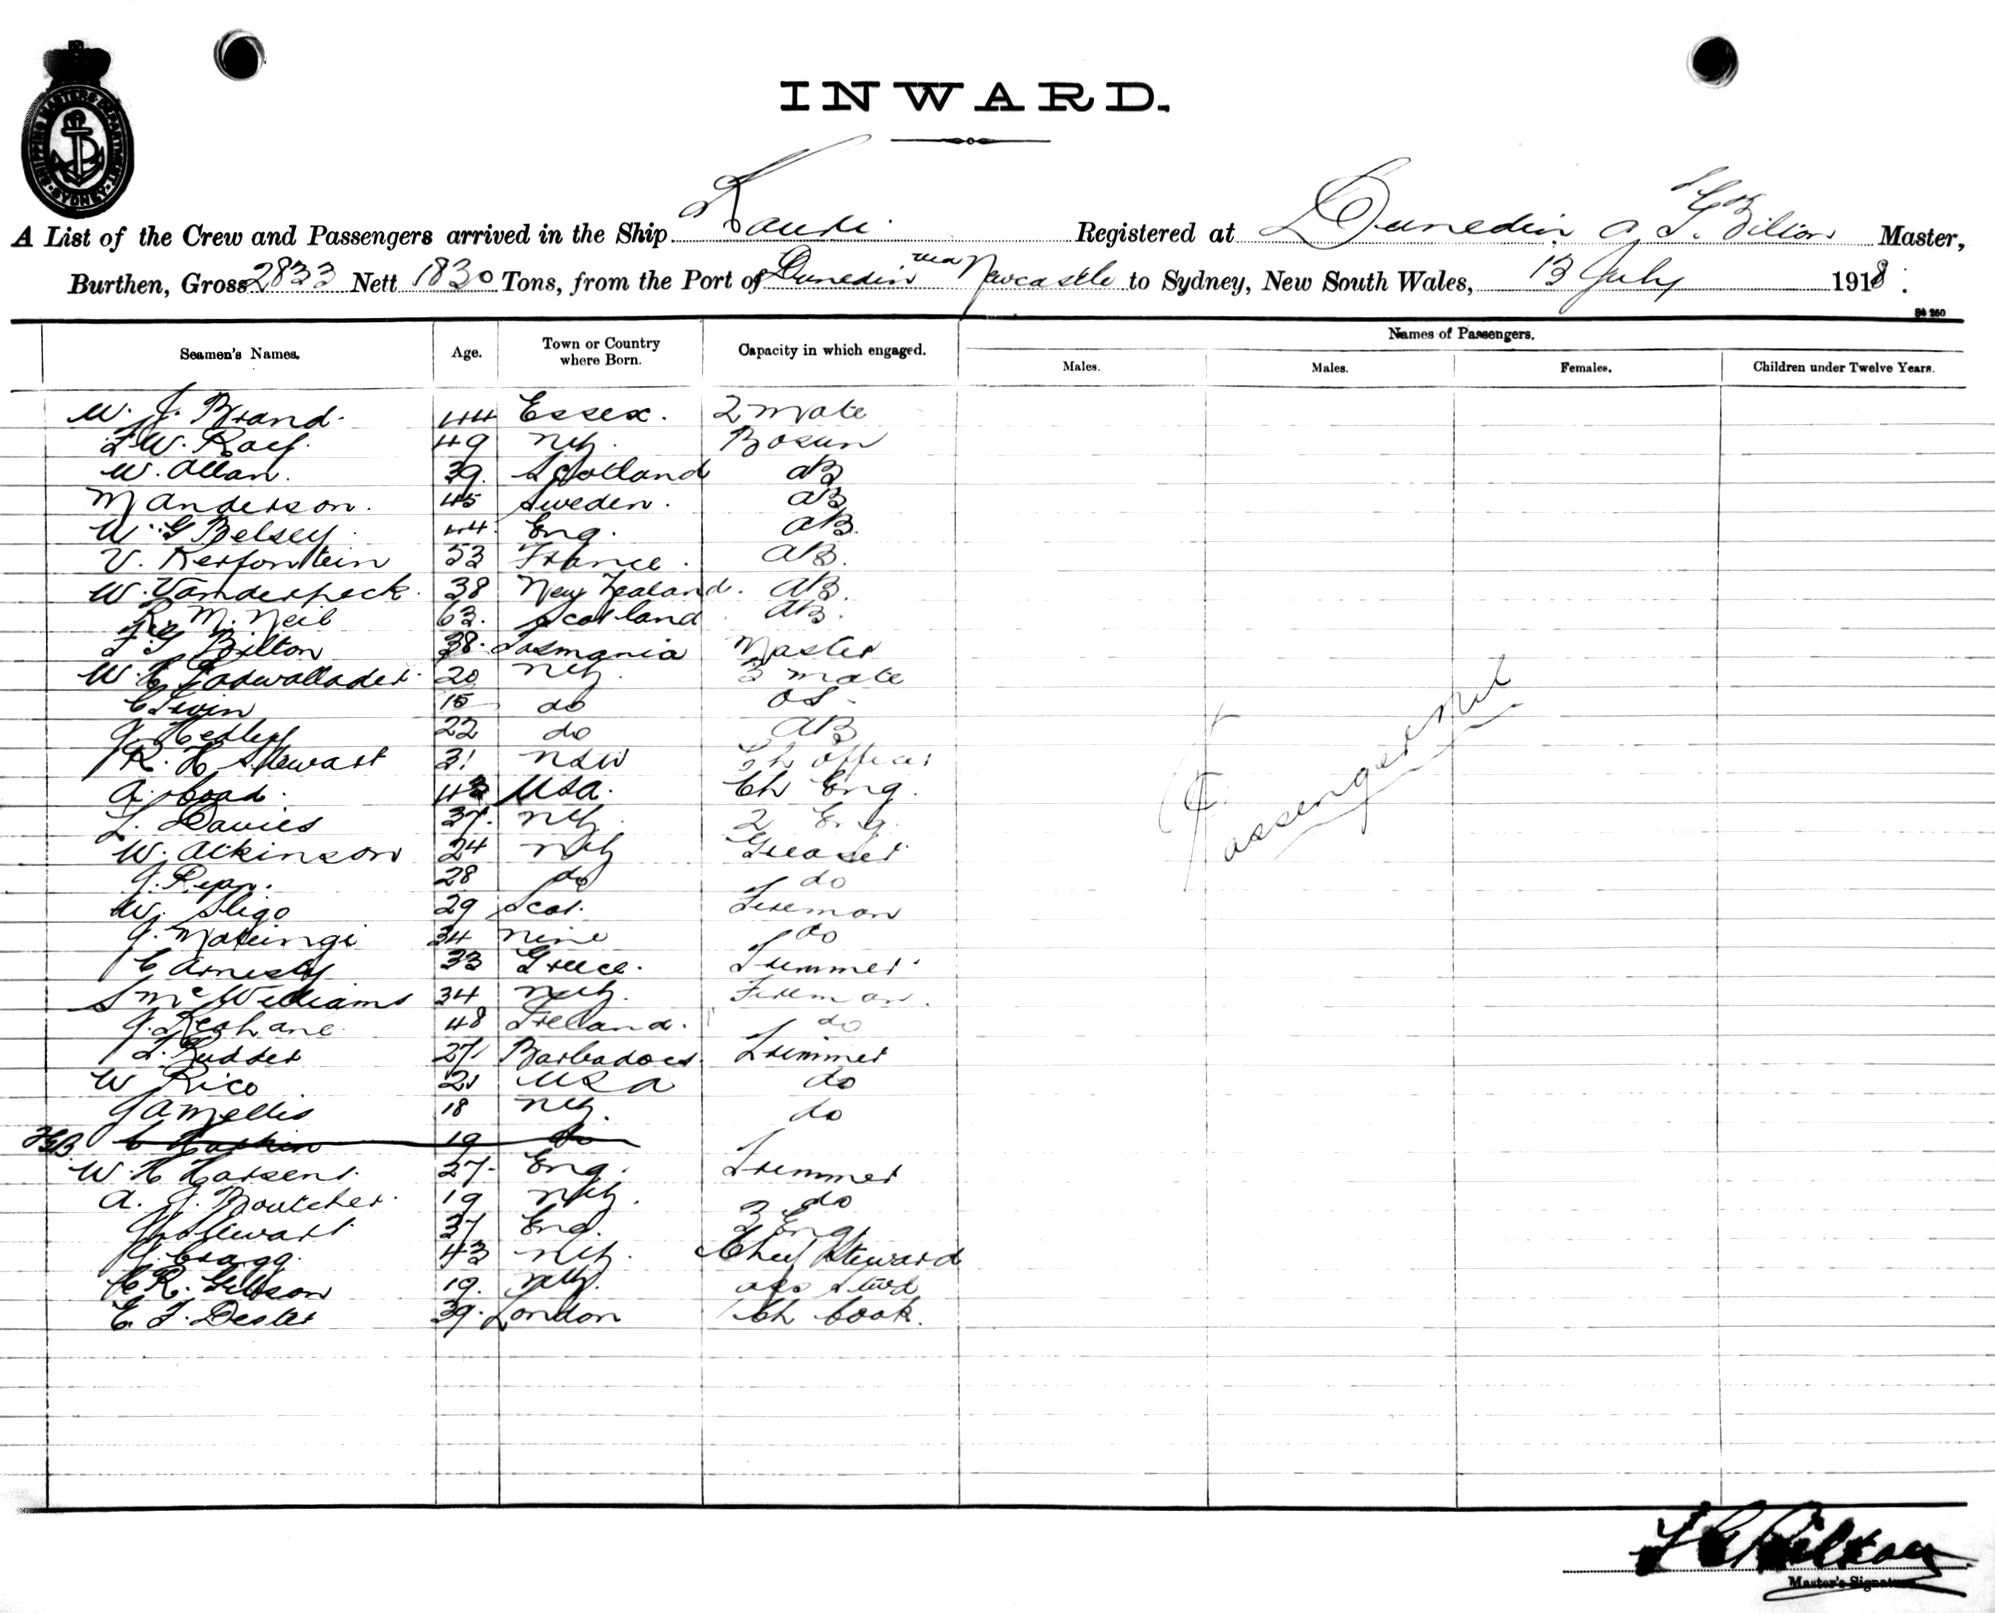 SHIPPING MASTERS DEPARTMENT SYDNEY
INWARD.
A List of the Crew and Passengers arrived in the Ship Kauri Registered at Dunedin F G Bilton Master,
Burthen, Gross 2833 Nett 1830 Tons, from the Port of Dunedin via Newcastle to Sydney, New South Wales, 13 July 1918.
Names of Passengers.
Seamen's Names. Age. Town or Country where Born. Capacity in which engaged. Males. Males. Females. Children under Twelve Years.
W. J. Brand. 44 Essex. 2 Mate
49 NZ. Bosun
W. Allan. 39. Scotland AB
M Anderson. 45 Sweden. AB
W. G Belsey 44 Eng. AB.
V. Kerfontein 53 France. AB.
W. Vanderpeck. 38 New Zealand. AB.
R. McNeil 63. Scotland AB.
F. G Bilton 38. Tasmania Master
W. C Cadwallader. 20 NZ. 3 Mate
15 do OS.
J. Hedley 22 do AB
R. H Stewart 31 NSW Ch Officer
A. Coad. 43 USA. Ch Eng.
L. Davies 37. NZ. 2 Eng.
W. Atkinson 24 NZ Greaser
J. Ryan. 28 do do
W. Sligo 29 Scot. Fireman
34 do
33 Greece. Trimmer
S McWilliams 34 NZ. Fireman.
J. Keohane 48 Ireland. do
27. Barbadoes. Trimmer
W Rico 21 USA do
J A Mellis 18 NZ. do
FGB. C Harkin 19 do
W. H Harsent. 27. Eng. Trimmer
A. J. Boutcher. 19 NZ. do
Stewart 37 Eng. 3 Eng
J. Cragg. 43 NZ. Chief Steward
C R. Gibson 19. NZ. Stwd
E. F. Dester 39. London Ch Cook.
Passengers Nil
F G Bilton
Master's Signature.